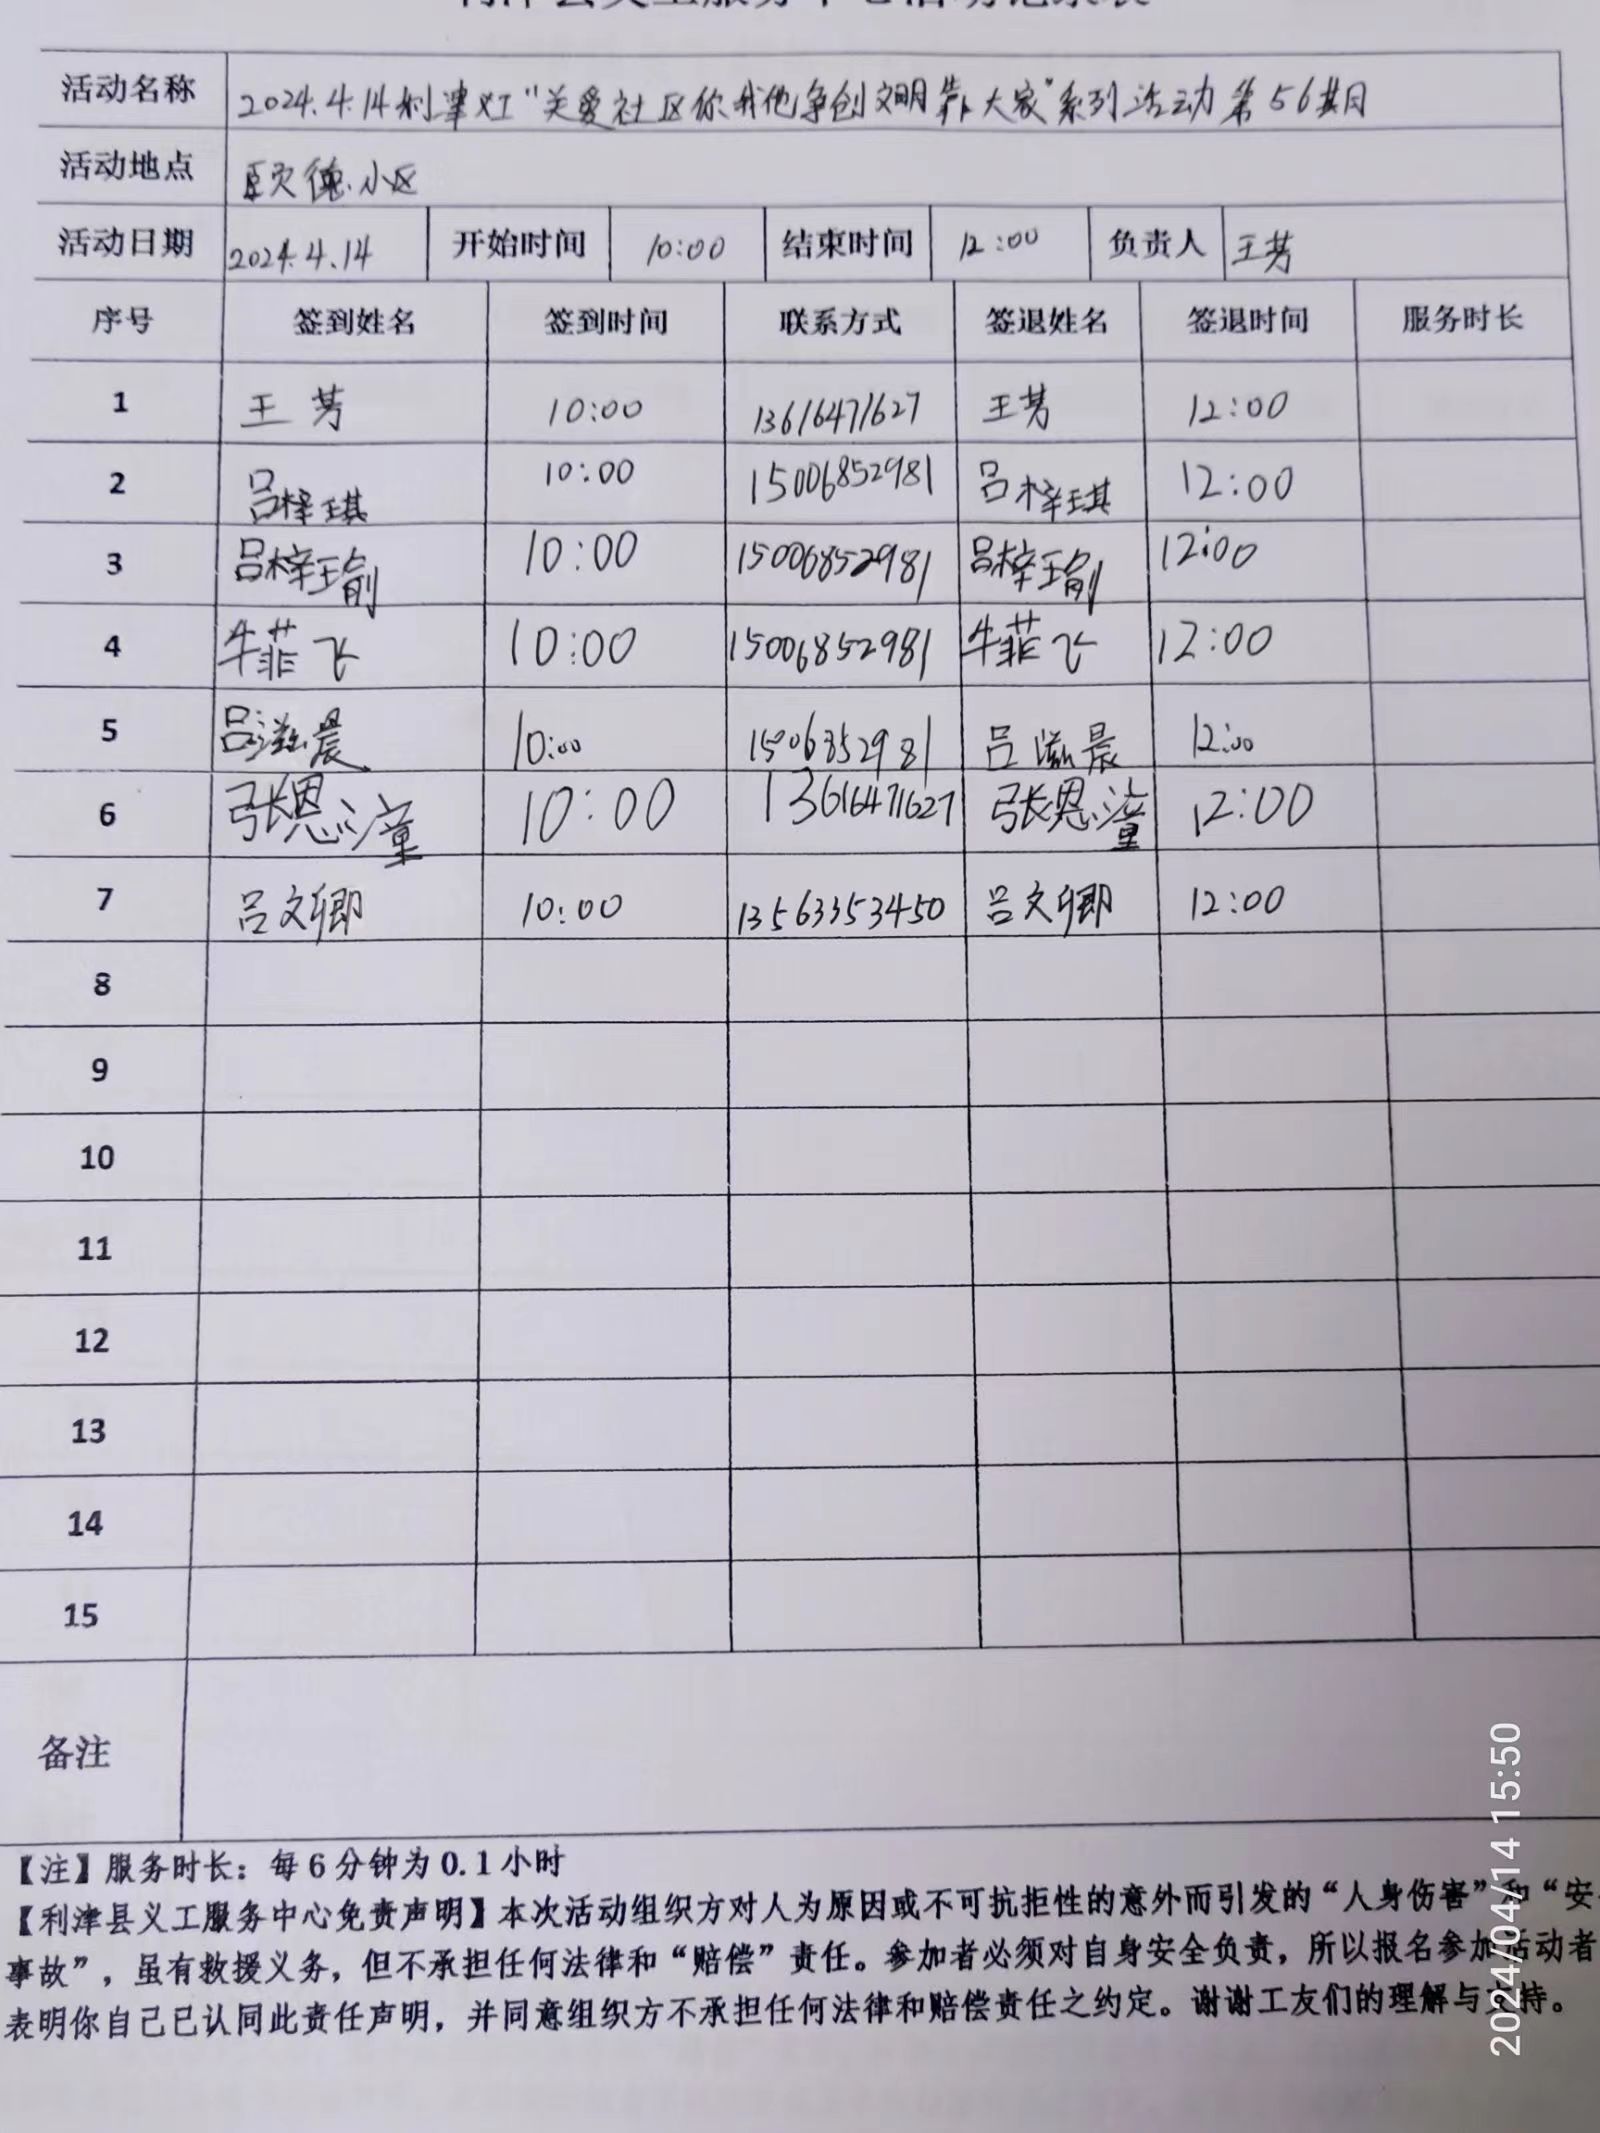 活动名称 2024.4.14利津义工“关爱社区你我他争创文明靠大家”系列活动第56期
活动地点 颐德小区
活动日期 2024.4.14 开始时间 10:00 结束时间 12:00 负责人 王芳
序号 签到姓名 签到时间 联系方式 签退姓名 签退时间 服务时长
1 王芳 10:00 13616471627 王芳 12:00
2 吕梓琪 10:00 15006852981 吕梓琪 12:00
3 吕梓瑜 10:00 15006852981 吕梓瑜 12:00
4 牛菲飞 10:00 15006852981 牛菲飞 12:00
5 吕滋晨 10:00 吕滋晨 12:00
6 张恩潼 10:00 13616471627 张恩潼 12:00
7 吕文卿 10:00 13563353450 吕文卿 12:00
8
9
10
11
12
13
14
15
备注
【注】服务时长：每6分钟为0.1小时
【利津县义工服务中心免责声明】本次活动组织方对人为原因或不可抗拒性的意外而引发的“人身伤害”和“安
事故”，虽有救援义务，但不承担任何法律和“赔偿”责任。参加者必须对自身安全负责，所以报名参加活动者
表明你自己已认同此责任声明，并同意组织方不承担任何法律和赔偿责任之约定。谢谢工友们的理解与支持。
2024/04/14 15:50